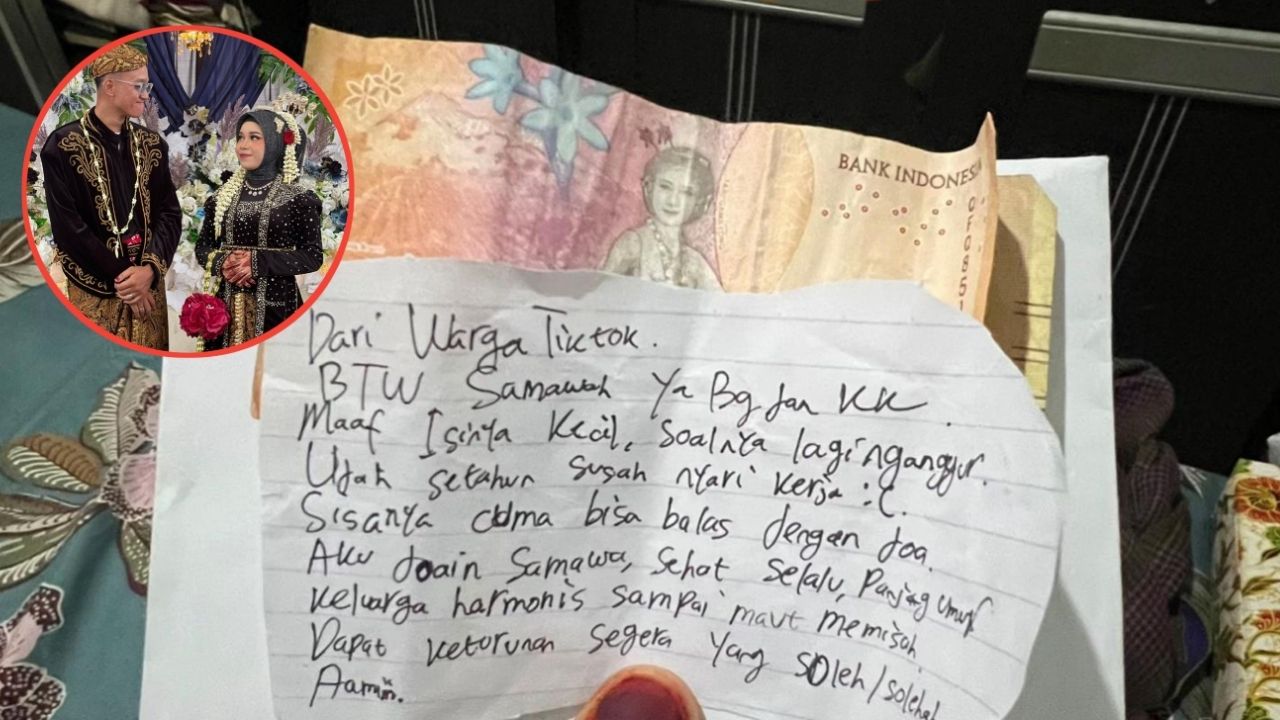 BANK INDONESIA
0F0851
Dari Warga Tiktok.
BTW Samawah Ya Bg dan KK.
Maaf Isinya Kecil, soalnya lagi nganggur.
Udah setahun susah nyari kerja :C.
Sisanya cuma bisa balas dengan doa.
Aku doain Samawa, Sehat selalu, Panjang umur
Keluarga harmonis sampai maut memisah
Dapat keturunan segera yang soleh/solehah
Aamiin.